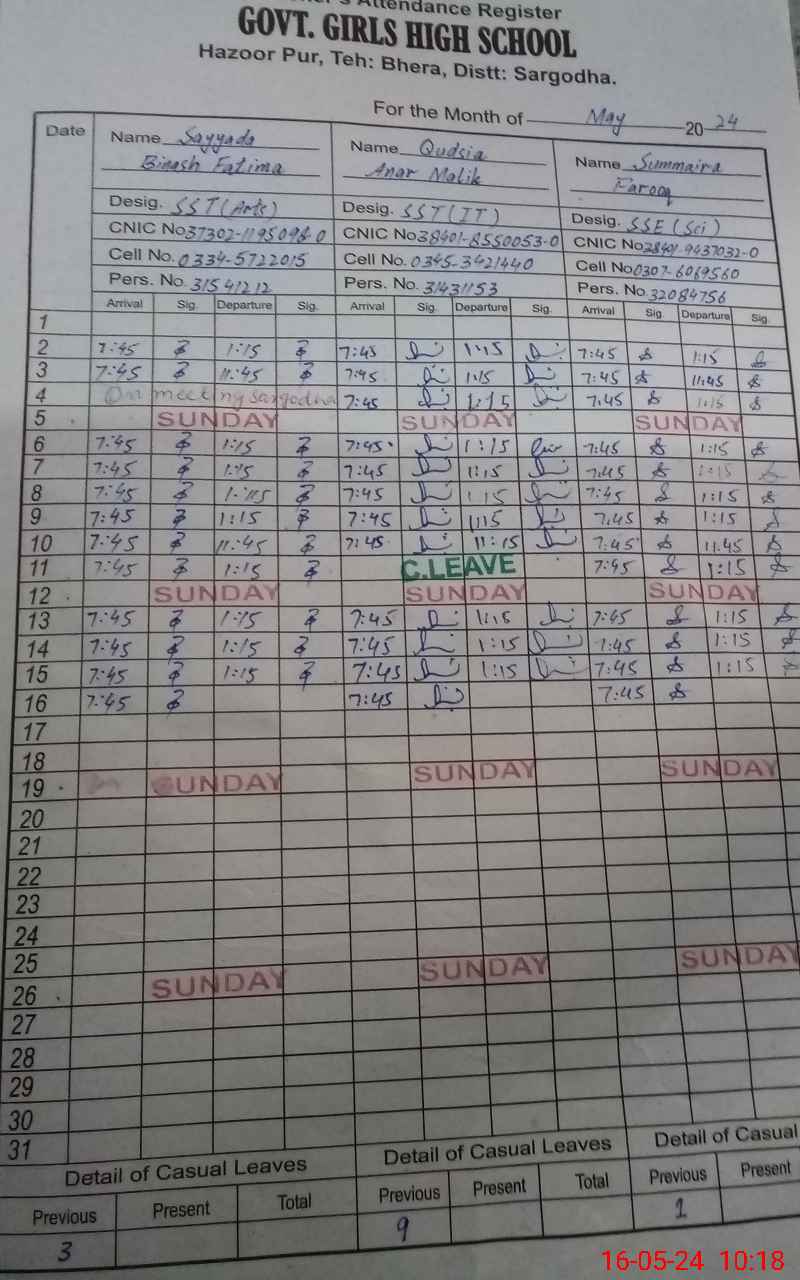 Attendance Register
GOVT. GIRLS HIGH SCHOOL
Hazoor Pur, Teh: Bhera, Distt: Sargodha.
For the Month of May 2024
Date Name Sayyada Name Qudsia Name Summaira
Binash Fatima Anar Malik Farooq
Desig. SST (Arts) Desig. SST (IT) Desig. SSE (Sci)
CNIC No 37302-1195096-0 CNIC No 38401-8550053-0 CNIC No 38401-9437032-0
Cell No. 0334-5722015 Cell No. 0345-3421440 Cell No 0307-6069560
Pers. No. 31541212 Pers. No. 31431153 Pers. No. 32084756
Arrival Sig. Departure Sig. Arrival Sig. Departure Sig. Arrival Sig. Departure Sig.
1
2 7:45 1:15 7:45 1:15 7:45 1:15
3 7:45 11:45 7:45 1:15 7:45 11:45
4 On meeting Sargodha 7:45 1:15 7:45 1:15
5 SUNDAY SUNDAY SUNDAY
6 7:45 1:15 7:45 1:15 7:45 1:15
7 7:45 1:15 7:45 1:15 7:45 1:15
8 7:45 1:15 7:45 1:15 7:45 1:15
9 7:45 1:15 7:45 1:15 7:45 1:15
10 7:45 11:45 7:45 11:15 7:45 11:45
11 7:45 1:15 C.LEAVE 7:45 1:15
12 SUNDAY SUNDAY SUNDAY
13 7:45 1:15 7:45 1:15 7:45 1:15
14 7:45 1:15 7:45 1:15 7:45 1:15
15 7:45 1:15 7:45 1:15 7:45 1:15
16 7:45 7:45 7:45
17
18
19 SUNDAY SUNDAY SUNDAY
20
21
22
23
24
25
26 SUNDAY SUNDAY SUNDAY
27
28
29
30
31
Detail of Casual Leaves Detail of Casual Leaves Detail of Casual
Previous Present Total Previous Present Total Previous Present
3 9 1
16-05-24 10:18